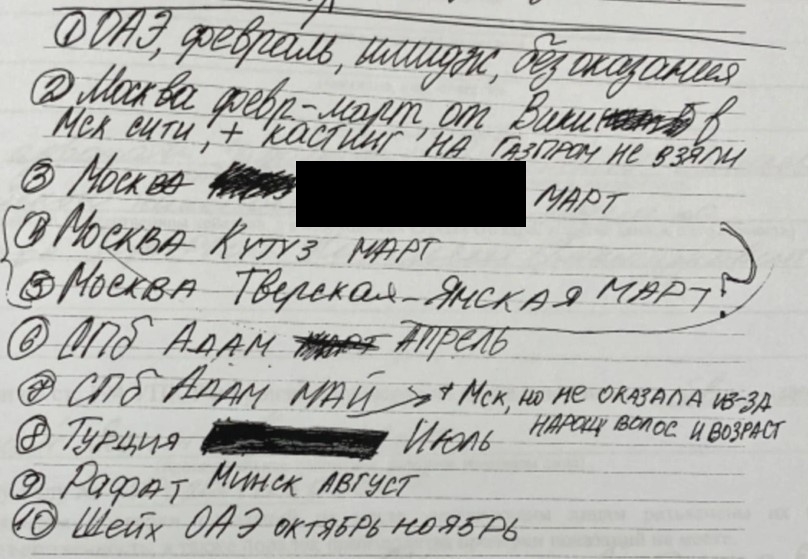 ① ОАЭ, февраль, имидж, без оказания
② Москва февр-март, от Вики в
Мск сити, + кастинг на газпром не взяли
③ Москва март
④ Москва Кутуз март
⑤ Москва Тверская-Ямская март?
⑥ СПб Адам апрель
⑦ СПб Адам май → + Мск, но не оказала из-за
нарощ волос и возраст
⑧ Турция Июль
⑨ Рафат Минск август
⑩ Шейх ОАЭ октябрь ноябрь